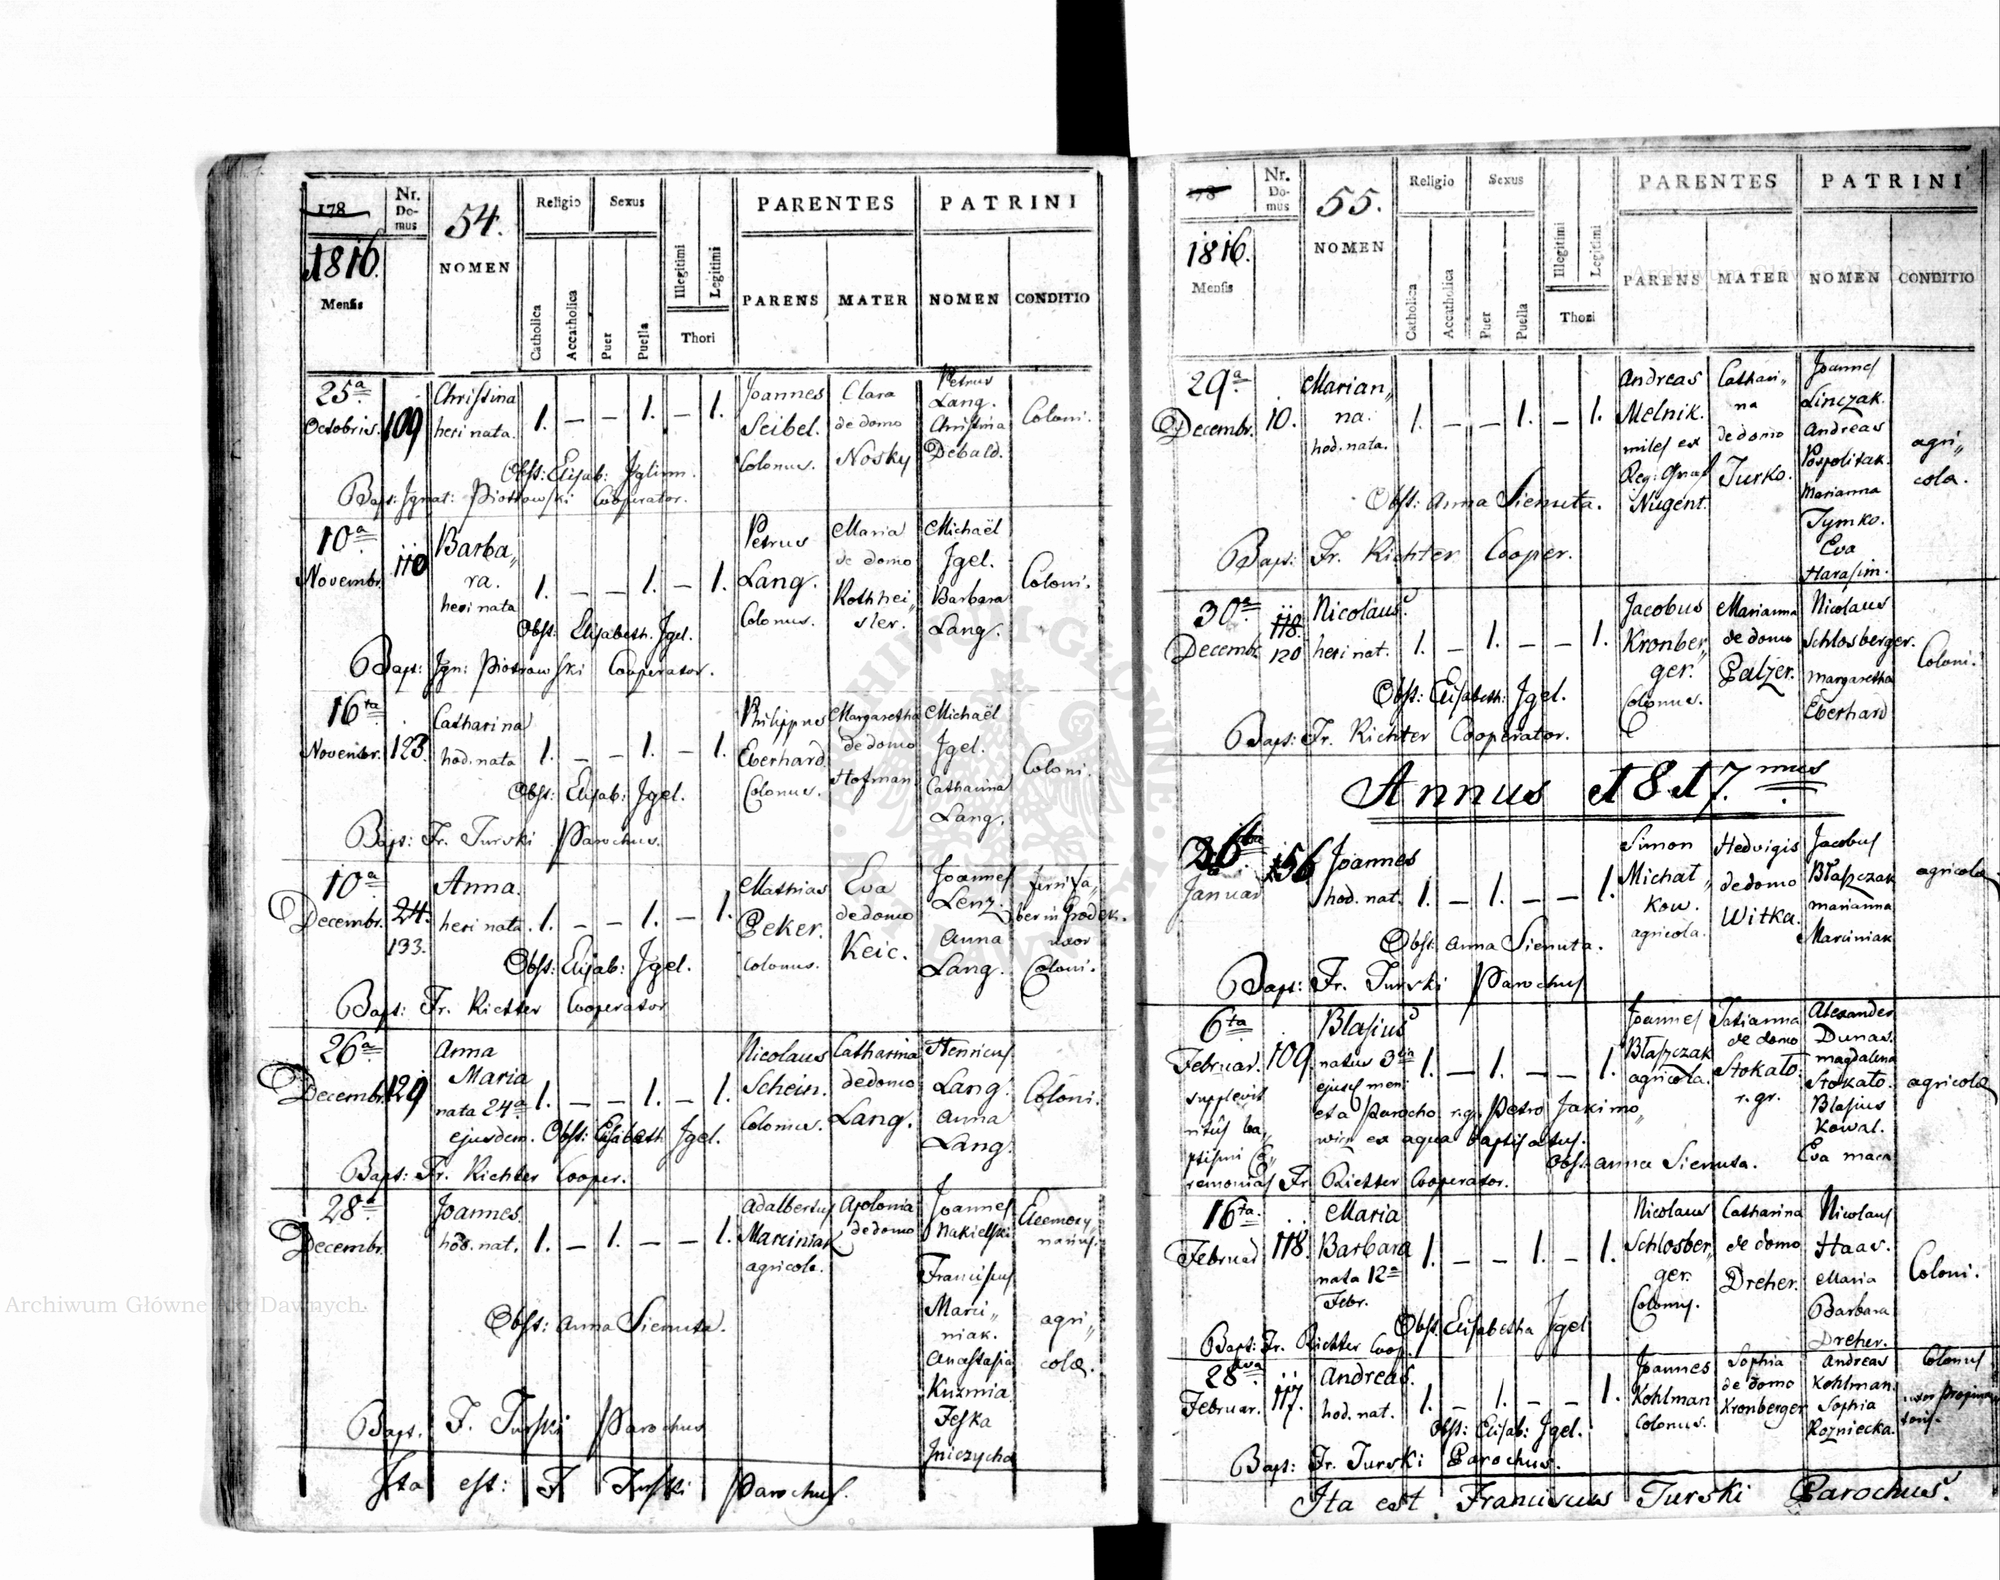 178
Nr. Domus
54.
Religio
Sexus
PARENTES
PATRINI
1816.
Mensis
NOMEN
Catholica
Accatholica
Puer
Puella
Illegitimi
Legitimi
Thori
PARENS
MATER
NOMEN
CONDITIO
25a Octobris. 109 Christina heri nata. 1. — — 1. — 1. Joannes Seibel. Colonus. Clara de domo Nosky Petrus Lang. Christina Debald. Coloni.
Obst: Elisab: Iglinn.
Bapt: Ignat: Piotrowski Cooperator.
10a Novembr. 110 Barba„ra. heri nata 1. — — 1. — 1. Petrus Lang. Colonus. Maria de domo Rothhei„sler. Michaël Igel. Barbara Lang. Coloni.
Obst: Elisabeth. Igel.
Bapt: Ign: Piotrowski Cooperator.
16ta Novembr. 123. Catharina hod. nata 1. — — 1. — 1. Philippus Eberhard Colonus. Margaretha de domo Hofman. Michaël Igel. Catharina Lang. Coloni.
Obst: Elisab: Igel.
Bapt: Fr. Turski Parochus.
10a Decembr. 24. 133. Anna. heri nata. 1. — — 1. — 1. Mathias Peker. Colonus. Eva de domo Keic. Joannes Lenz. Anna Lang. in Grodek. uxor Coloni.
Obst: Elisab: Igel.
Bapt: Fr. Richter Cooperator
26a Decembr. 129 Anna Maria nata 24a ejusdem. 1. — — 1. — 1. Nicolaus Schein. Colonus. Catharina de domo Lang. Henricus Lang. Anna Lang. Coloni.
Obst: Elisabeth Igel.
Bapt: Fr. Richter Cooper.
28a Decembr. Joannes. hod. nat. 1. — 1. — — 1. Adalbertus Marciniak agricola. Apolonia de domo Joannes Nakielski Franciscus Marci„niak. Anastasia Kuzmia Feska Jniczycha Eleemosynarius. agri„colæ.
Obst: Anna Siemuta.
Bapt. F. Turski Parochus
Ita est: F Turski Parochus.
178
Nr. Domus
55.
Religio
Sexus
PARENTES
PATRINI
1816.
Mensis
NOMEN
Catholica
Accatholica
Puer
Puella
Illegitimi
Legitimi
Thori
PARENS
MATER
NOMEN
CONDITIO
29a Decembr. 10. Marian„na. hod. nata. 1. — — 1. — 1. Andreas Melnik. miles ex Reg: Graf Nugent. Cathari„na de domo Turko. Joannes Linczak. Andreas Pospolitak. Marianna Tymko. Eva Harasim. agri„cola.
Obst: Anna Siemuta.
Bapt: Fr. Richter Cooper.
30a Decembr. 118. 120 Nicolaus. heri nat. 1. — 1. — — 1. Jacobus Kronber„ger. Colonus. Marianna de domo Palzer. Nicolaus Schlosberger. Margaretha Eberhard Coloni.
Obst: Elisabeth: Igel.
Bapt: Fr. Richter Cooperator.
Annus 1817.mus
26ta Januar 156 Joannes hod. nat. 1. — 1. — — 1. Simon Michał„kow. agricola. Hedvigis de domo Witka. Jacobus Błaszczak Marianna Marciniak agricolæ
Obst: Anna Siemuta.
Bapt: Fr. Turski Parochus
6ta Februar. 109. Blasius natus 3tia ejusd: men: 1. — 1. — — 1. Joannes Błaszczak agricola. Tatianna de domo Stokało. r. gr. Alexander Dunas. Magdalena Stokało. Blasius Kowal. Eva maca agricolæ
supplevit ritûs ba„ptismi Ce„remonias Fr. Richter Cooperator.
et a Parocho r. gr. Petro Jakimo„wicz ex aqua baptisatus.
Obst: Anna Siemuta.
16ta. Februar 118. Maria Barbara nata 12a Febr. 1. — — 1. — 1. Nicolaus Schlosber„ger. Colonus. Catharina de domo Dreher. Nicolaus Haas. Maria Barbara Dreher. Coloni.
Obst. Elisabetha Igel
Bapt: Fr. Richter Coop.
28va Februar. 117. Andreas. hod. nat. 1. — 1. — — 1. Joannes Kohlman Colonus. Sophia de domo Kronberger Andreas Kohlman. Sophia Rozniecka. Colonus uxor
Obst: Elisab: Igel.
Bapt: Fr. Turski Parochus.
Ita est Franciscus Turski Parochus.
Archiwum Główne Akt Dawnych